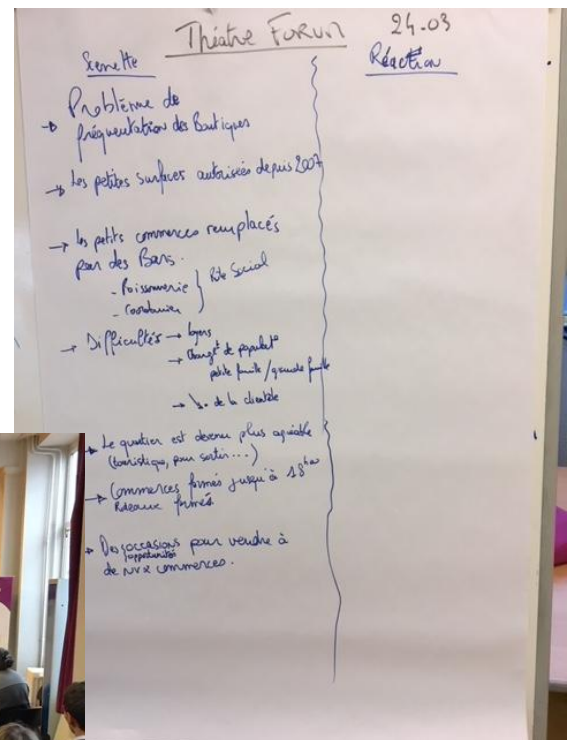 Théatre FORUM
24.03
Réaction
Problème de
fréquentation des Boutiques
Les petites surfaces autorisées depuis 2007
les petits commerces remplacés
par des Bars.
- Poissonnerie
- Cordonnier
Social
Difficultés → loyers
→ Changt de populat°
petite famille / grande famille
→ ↘ de la clientèle
Le quartier est devenu plus agréable
(touristique, pour sortir...)
Commerces fermés jusqu'à 18h
Rideaux fermés
Des occasions pour vendre à
opportunités
de nvx commerces.